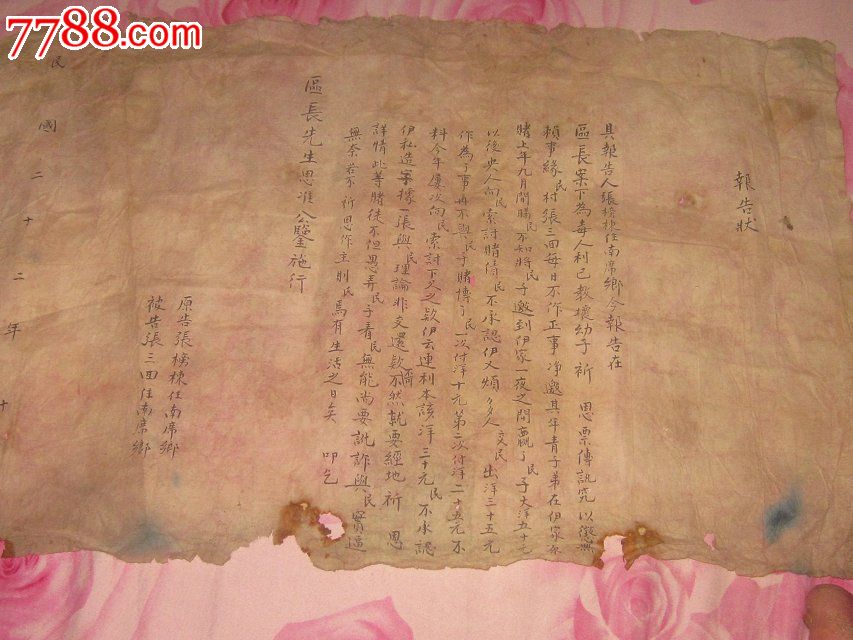 7788.com
報告狀
具報告人張榜棟住南席鄉今報告在
區長案下為毒人利己教壞幼子祈 恩票傳訊究以懲
楨事緣民村張三回每日不作正事净邀其年青子弟在伊家
賭上年九月間瞞民不知將民子邀到伊家一夜之間贏了民子大洋五十元
以後央人向民索討賭債民不承認伊又煩多人 交民 出洋三十五元
作為了事再不與民子賭博了民一次付洋十元第二次付洋二十五元不
料今年屢次向民索討下欠之欵伊云連利本該洋三十元民不承認
伊私造字據張與民理論非交還欵不然就要經地祈 恩
詳情此等賭徒不但愚弄民子看民無能尚要訛詐與民實逼
無奈若不祈恩作主則民焉有生活之日矣 叩乞
區長先生恩准公鑒施行
原告張榜棟住南席鄉
被告張三回住南席鄉
民國二十二年十